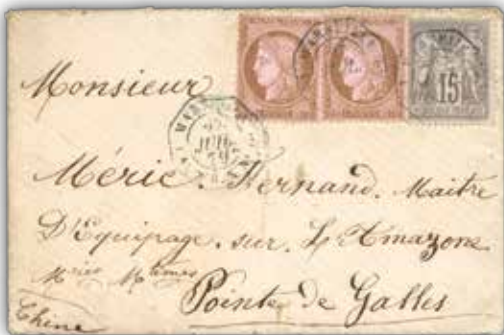 15
Monsieur
Méric. Fernand. Maitre
D'Equipage. sur. L'Amazone
Mries Mtimes
Pointe de Galles
Chine